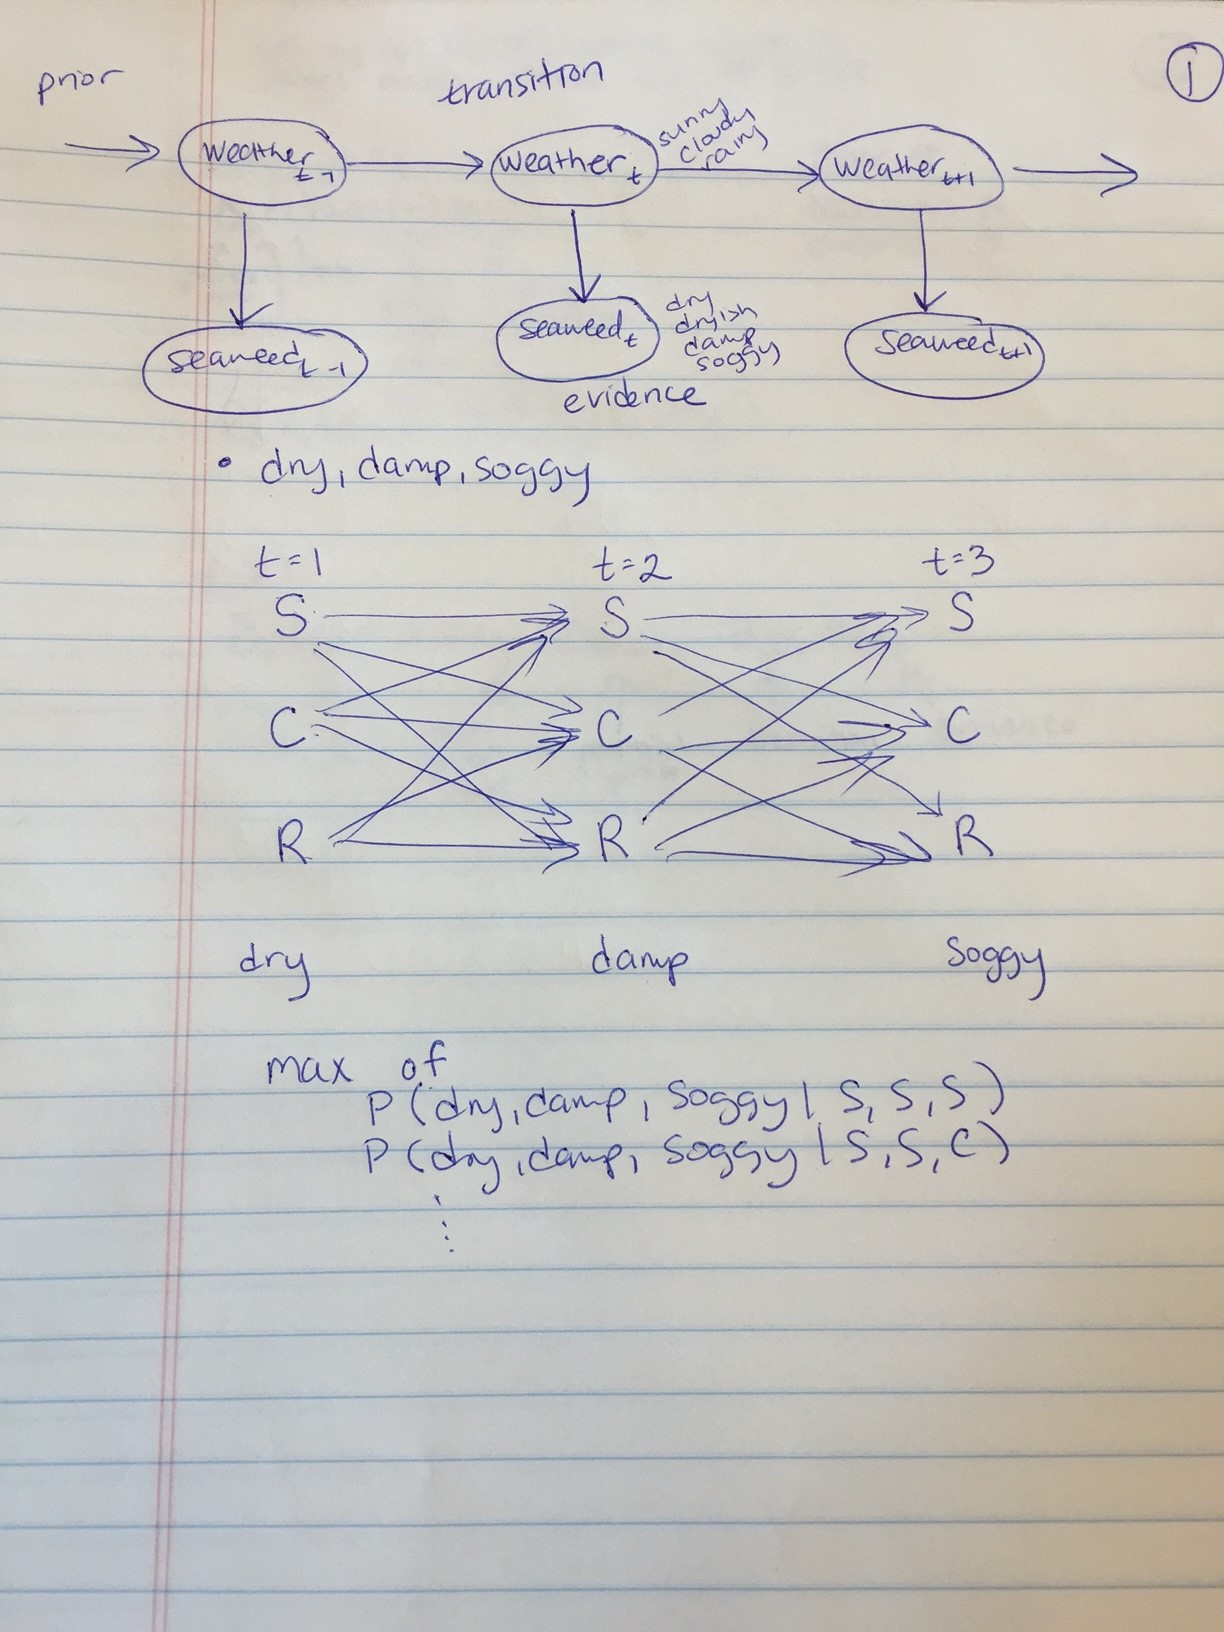 prior
transition
1
weather t-1
weather t
sunny
cloudy
rainy
weather t+1
seaweed t-1
seaweed t
dry
dryish
damp
soggy
seaweed t+1
evidence
• dry, damp, soggy
t=1 t=2 t=3
S S S
C C C
R R R
dry damp soggy
max of
P(dry, damp, soggy | S, S, S)
P(dry, damp, soggy | S, S, C)
⋮